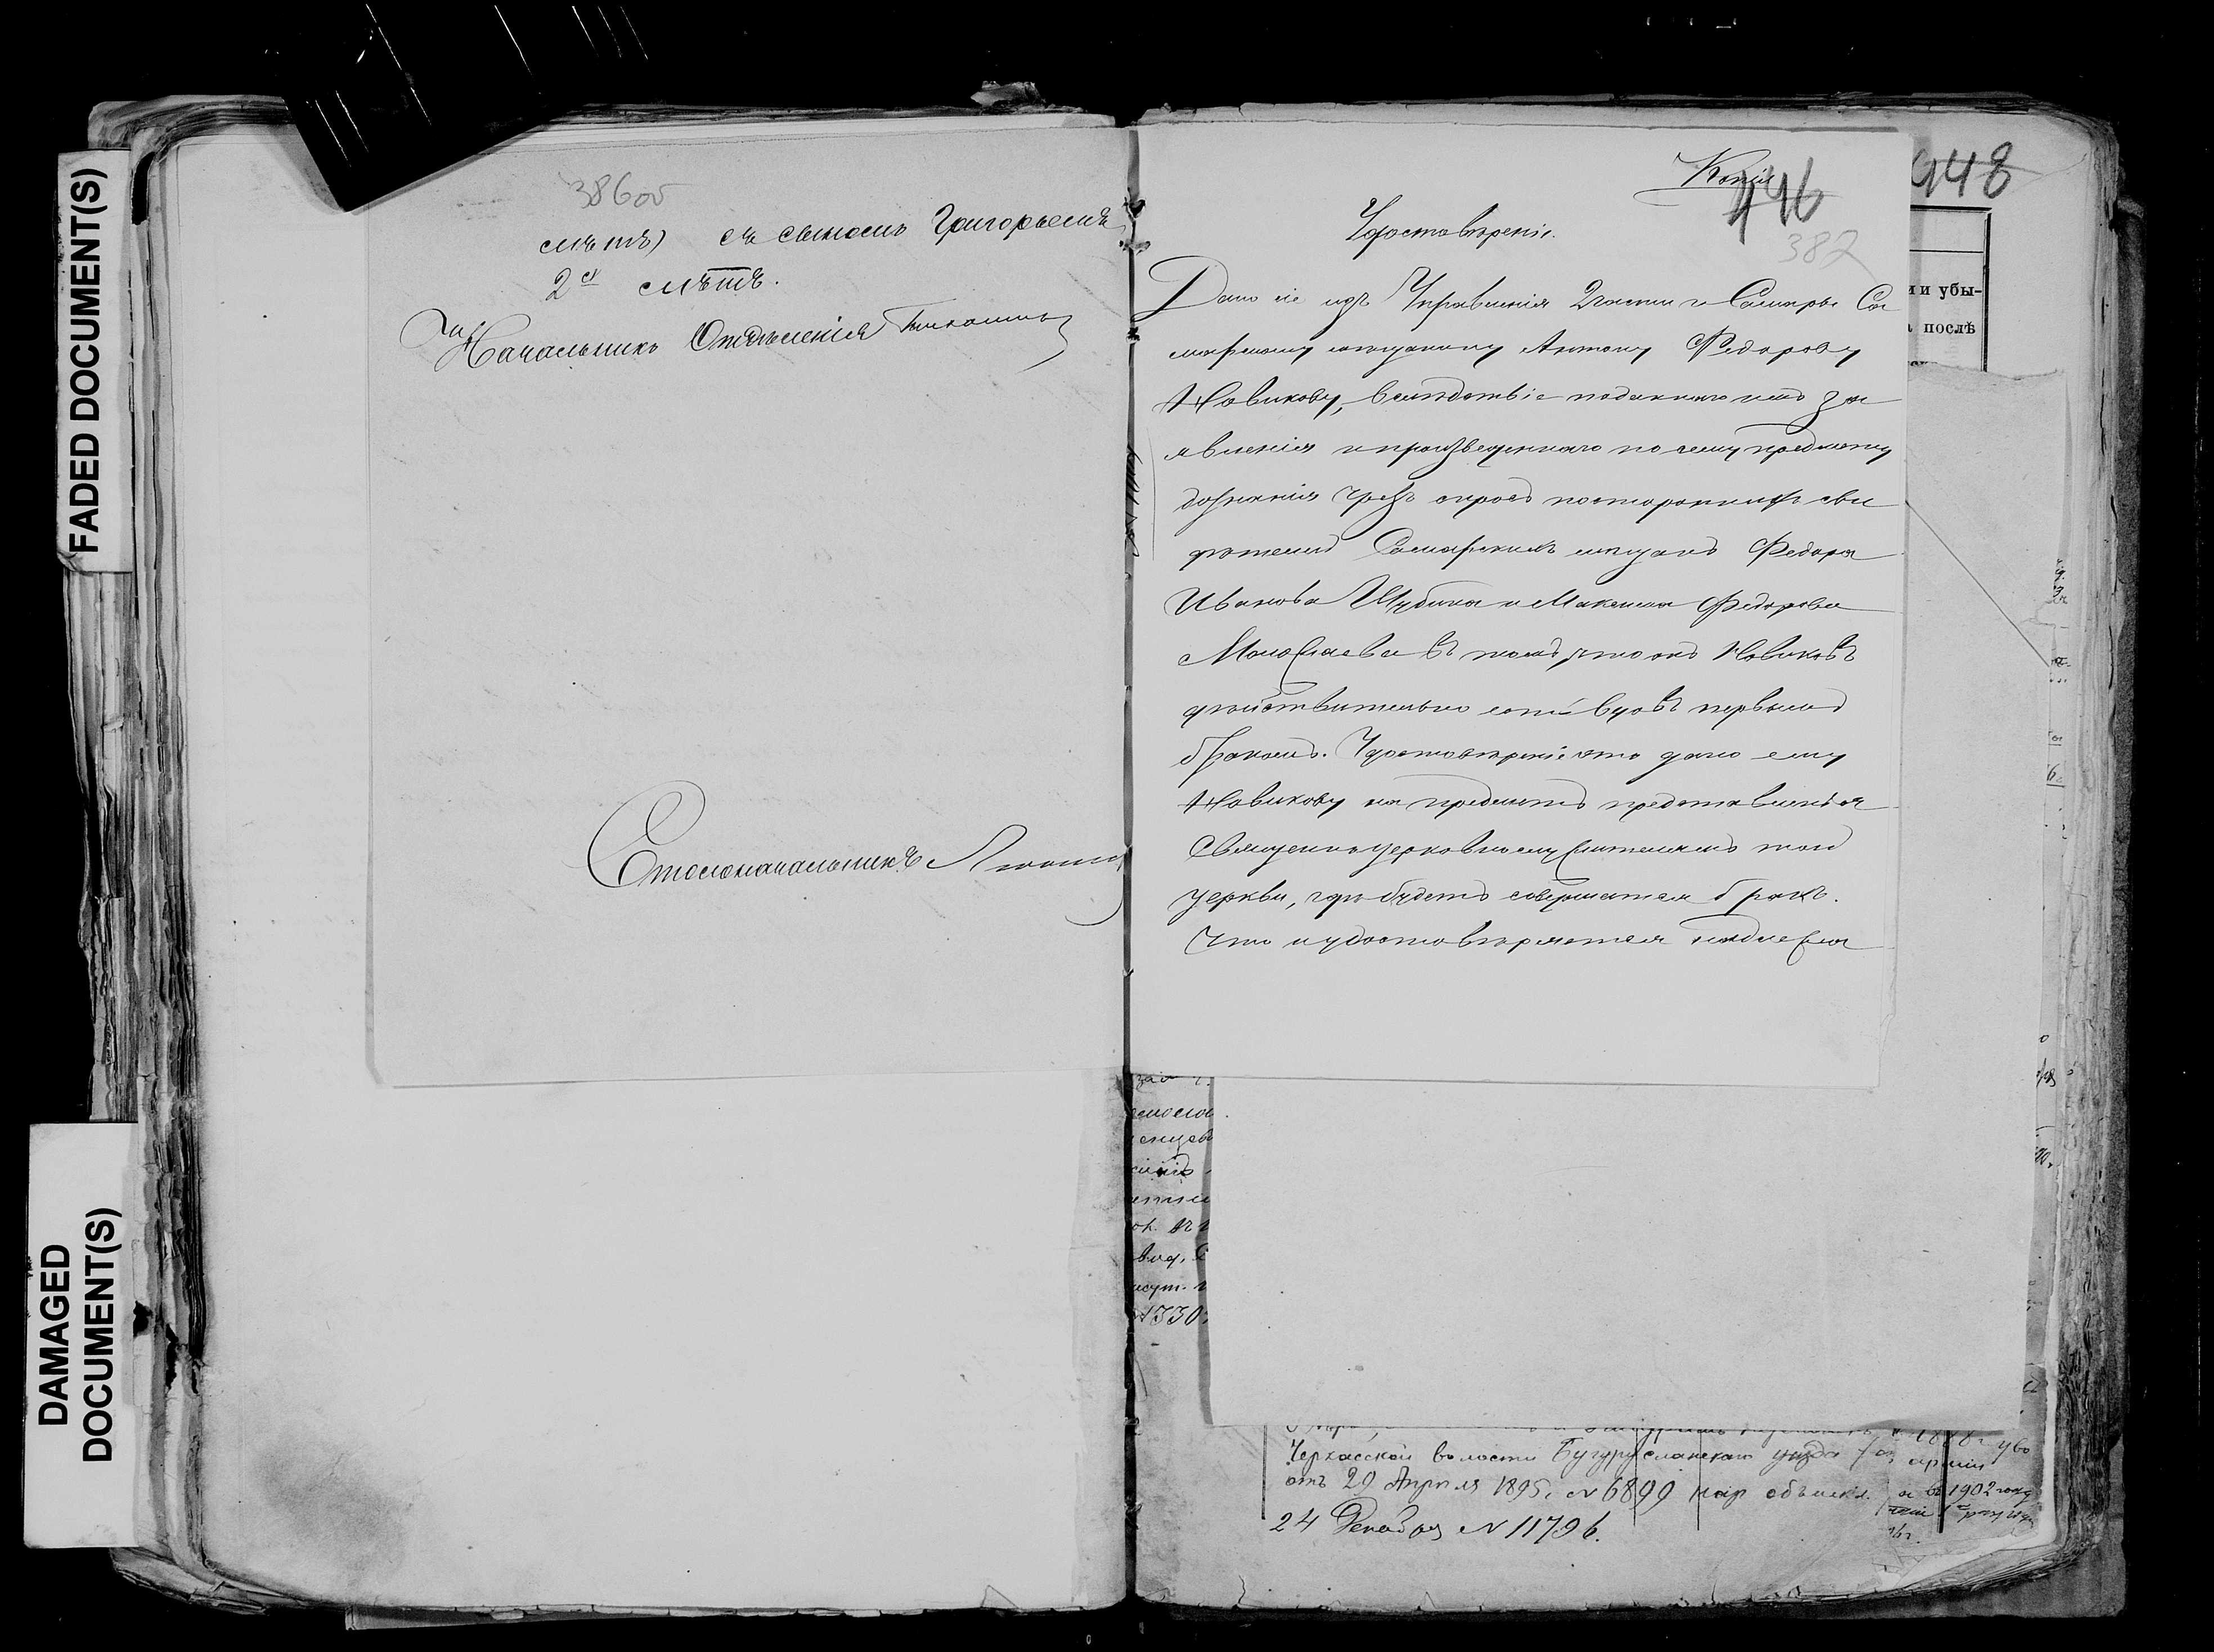 FADED DOCUMENT(S)
DAMAGED
DOCUMENT(S)
386об
лѣтъ) съ сыномъ Григорьемъ
2х лѣтъ.
За Начальникъ Отдѣленія
Столоначальникъ
Копія
446
448
382
Удостовѣреніе.
Дано сіе изъ Управленія 2 части г. Самары Са
марскому мѣщанину Антону Федорову
Новикову, вслѣдствіе поданнаго имъ за
явленія и произведеннаго по сему предмету
дознанія чрезъ спросъ постороннихъ сви
дѣтелей Самарскихъ мѣщанъ Федора
Иванова Шубина и Максима Федорова
въ томъ, что онъ Новиковъ
дѣйствительно есть вдовъ первымъ
бракомъ. Удостовѣреніе это дано ему
Новикову на предметъ представленія
Священноцерковнослужителямъ той
церкви, гдѣ будетъ совершаться бракъ.
Что и удостовѣряется надлежа
и убы-
послѣ
1330
Черкасской волости Бугурусланскаго уѣзда
отъ 29 Апрѣля 1895г. № 6899
24 Декабря № 11796.
1888г
арміи
въ 1902 году